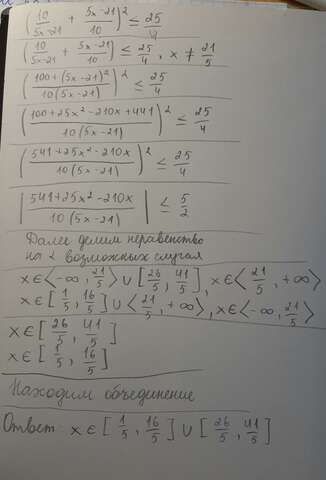 (10/(5x-21) + (5x-21)/10)² ≤ 25/4
(10/(5x-21) + (5x-21)/10) ≤ 25/4, x ≠ 21/5
((100+(5x-21)²)/(10(5x-21)))² ≤ 25/4
((100+25x²-210x+441)/(10(5x-21)))² ≤ 25/4
((541+25x²-210x)/(10(5x-21)))² ≤ 25/4
|(541+25x²-210x)/(10(5x-21))| ≤ 5/2
Далее делим неравенство
на 2 возможных случая
x∈⟨-∞, 21/5⟩ ∪ [26/5, 41/5], x∈⟨21/5, +∞⟩
x∈[1/5, 16/5] ∪ ⟨21/5, +∞⟩, x∈⟨-∞, 21/5⟩
x∈[26/5, 41/5]
x∈[1/5, 16/5]
Находим объединение
Ответ: x∈[1/5, 16/5] ∪ [26/5, 41/5]